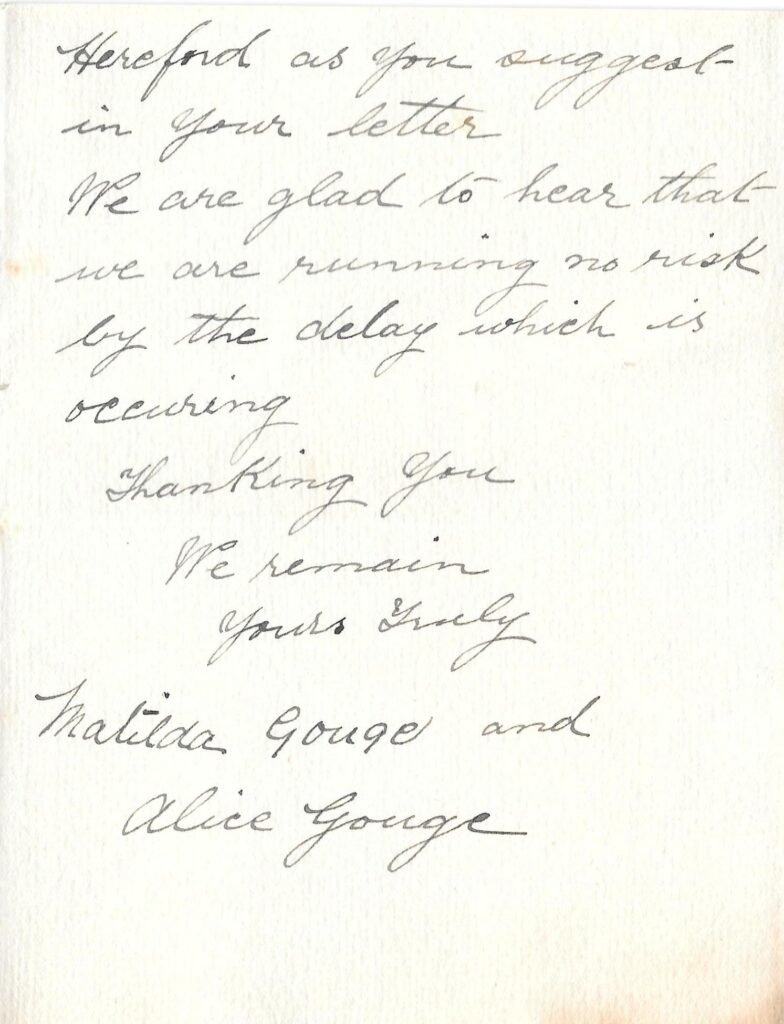 Hereford as you suggest
in your letter
We are glad to hear that
we are running no risk
by the delay which is
occuring
Thanking You
We remain
Yours Truly
Matilda Gouge and
Alice Gouge